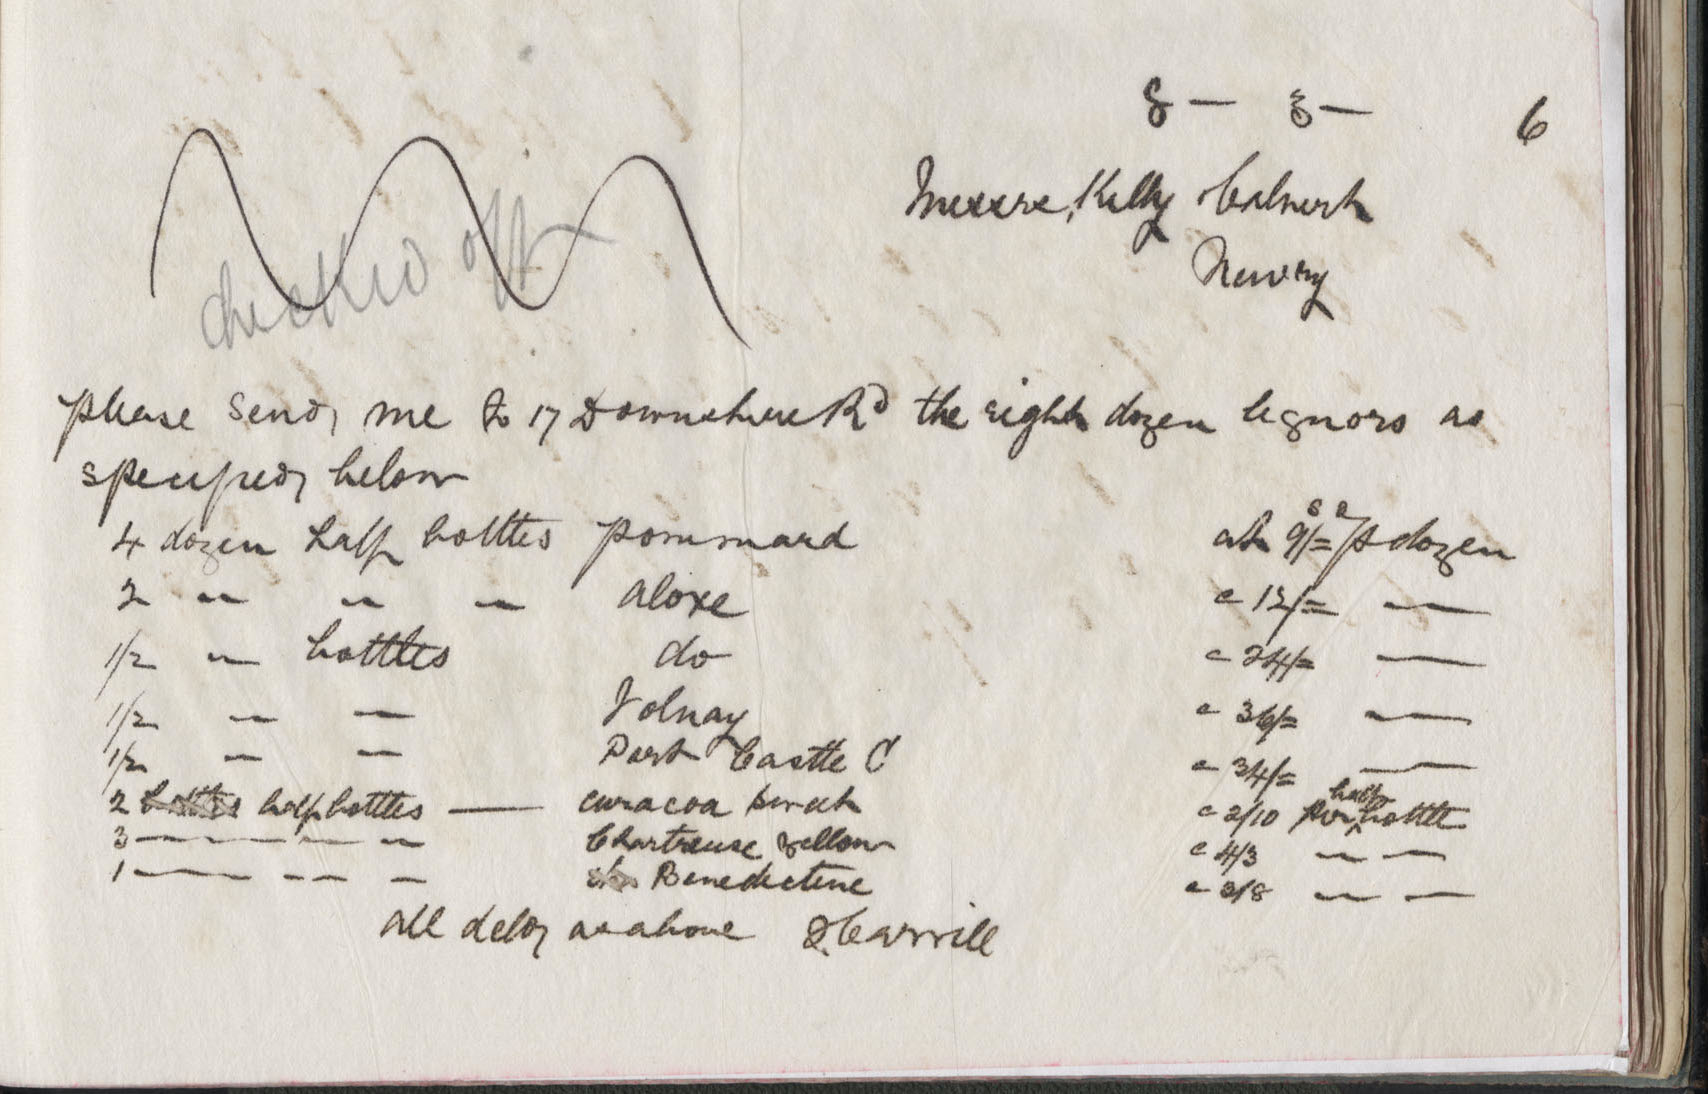 8 — 3 — 6
Messrs, Kelly Calvert
Newry
checked off
please send, me to 17 Downshire Rd the eight dozen liqnors as
specified, below
4 dozen half bottles pommard at 9/= p dozen
2 " " " aloxe " 12/= —
1/2 " bottles do " 24/= —
1/2 " — Volnay " 36/= —
1/2 — — Port Castle C " 34/= —
2 half bottles — curacoa " 2/10 per half bottle
3 — — — — Chartreuse yellow " 4/3 — —
1 — — — — Benedictine " 3/8 — —
all deld, as above